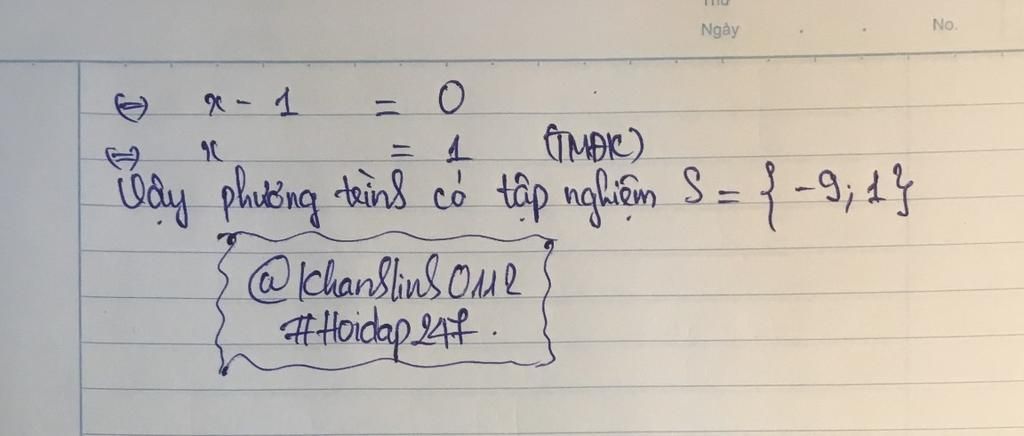 Thứ
Ngày . . No.
⇔ x - 1 = 0
⇔ x = 1 (TMĐK)
Vậy phương trình có tập nghiệm S = {-9; 1}
@khanhlinh0112
#Hoidap247.